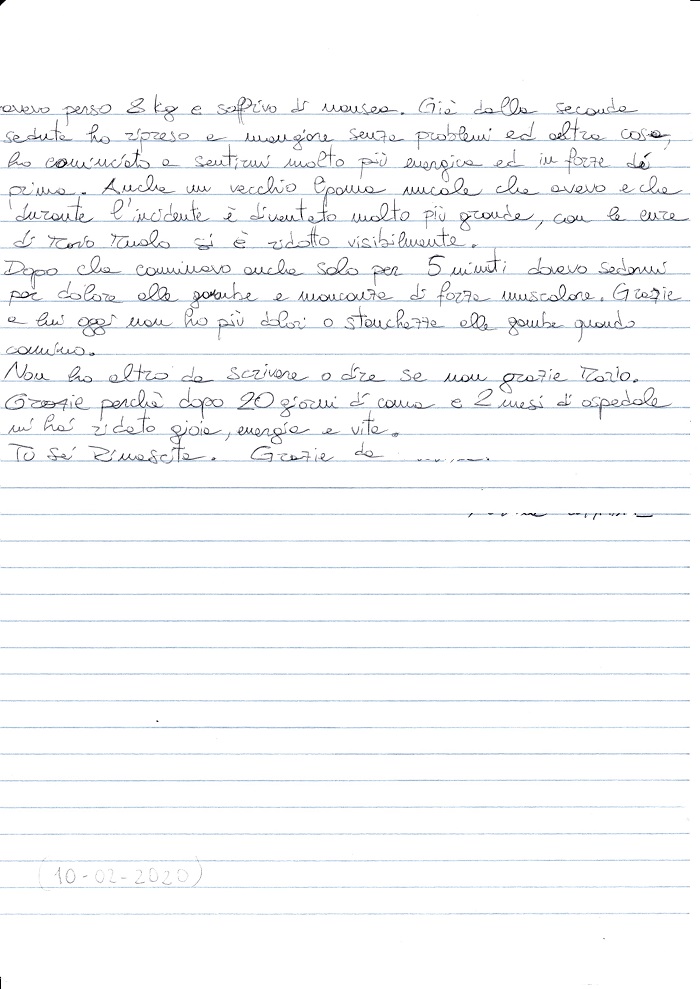 avevo perso 8 kg e soffrivo di nausea. Già dalla seconda
seduta ho ripreso a mangiare senza problemi ed altra cosa,
ho cominciato a sentirmi molto più energica ed in forze di
prima. Anche un vecchio lipoma nucale che avevo e che
durante l'incidente è diventato molto più grande, con le cure
di si è ridotto visibilmente.
Dopo che camminavo anche solo per 5 minuti dovevo sedermi
per dolore alle gambe e mancanza di forza muscolare. Grazie
a lui oggi non ho più dolori o stanchezza alle gambe quando
cammino.
Non ho altro da scrivere o dire se non grazie
Grazie perchè dopo 20 giorni di coma e 2 mesi di ospedale
mi hai ridato gioia, energia e vita.
Tu sei Rinascita. Grazie da
(10-02-2020)